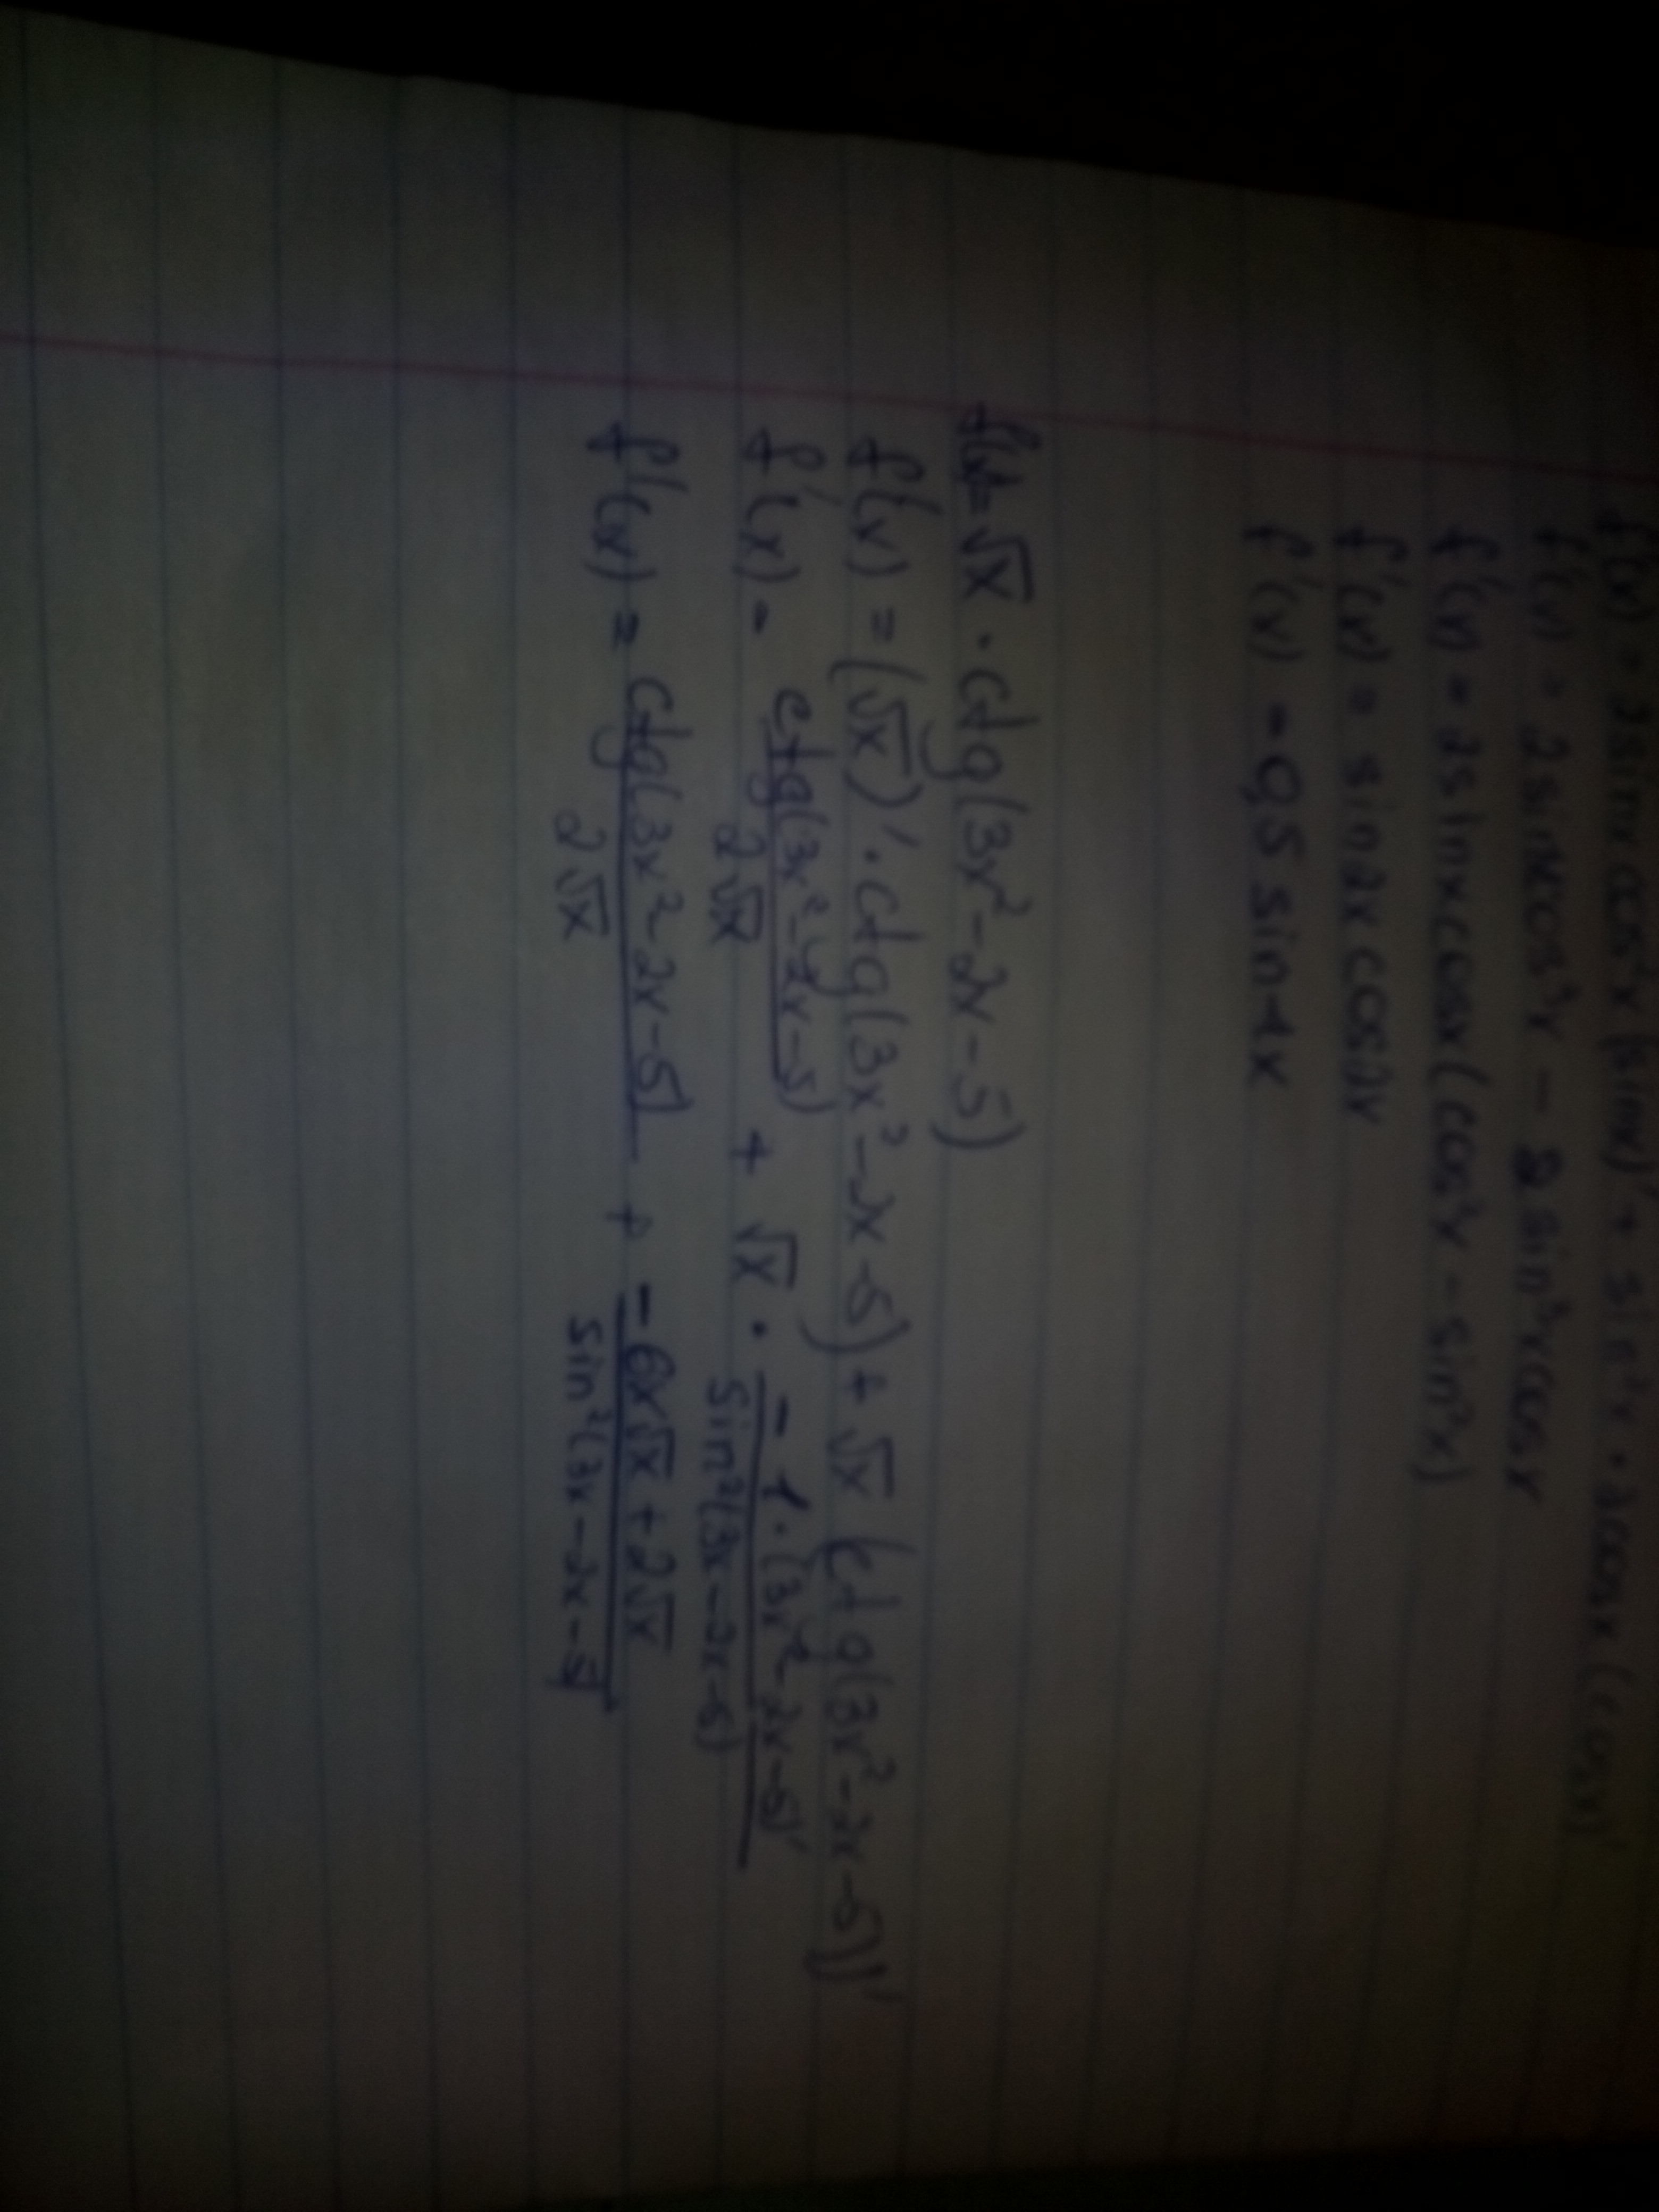 f'(x) = 2sinx cos²x (sinx)' + sin²x · 2cosx (cosx)'
f'(x) = 2sinxcos³x - 2sin³xcosx
f'(x) = 2sinxcosx(cos²x - sin²x)
f'(x) = sin2xcos2x
f'(x) = 0,5 sin4x
f(x) = √x · ctg(3x² - 2x - 5)
f'(x) = (√x)' · ctg(3x² - 2x - 5) + √x (ctg(3x² - 2x - 5))'
f'(x) = ctg(3x² - 2x - 5)/2√x + √x · -1·(3x² - 2x - 5)'/sin²(3x - 2x - 5)
f'(x) = ctg(3x² - 2x - 5)/2√x + -6x√x + 2√x/sin²(3x - 2x - 5)